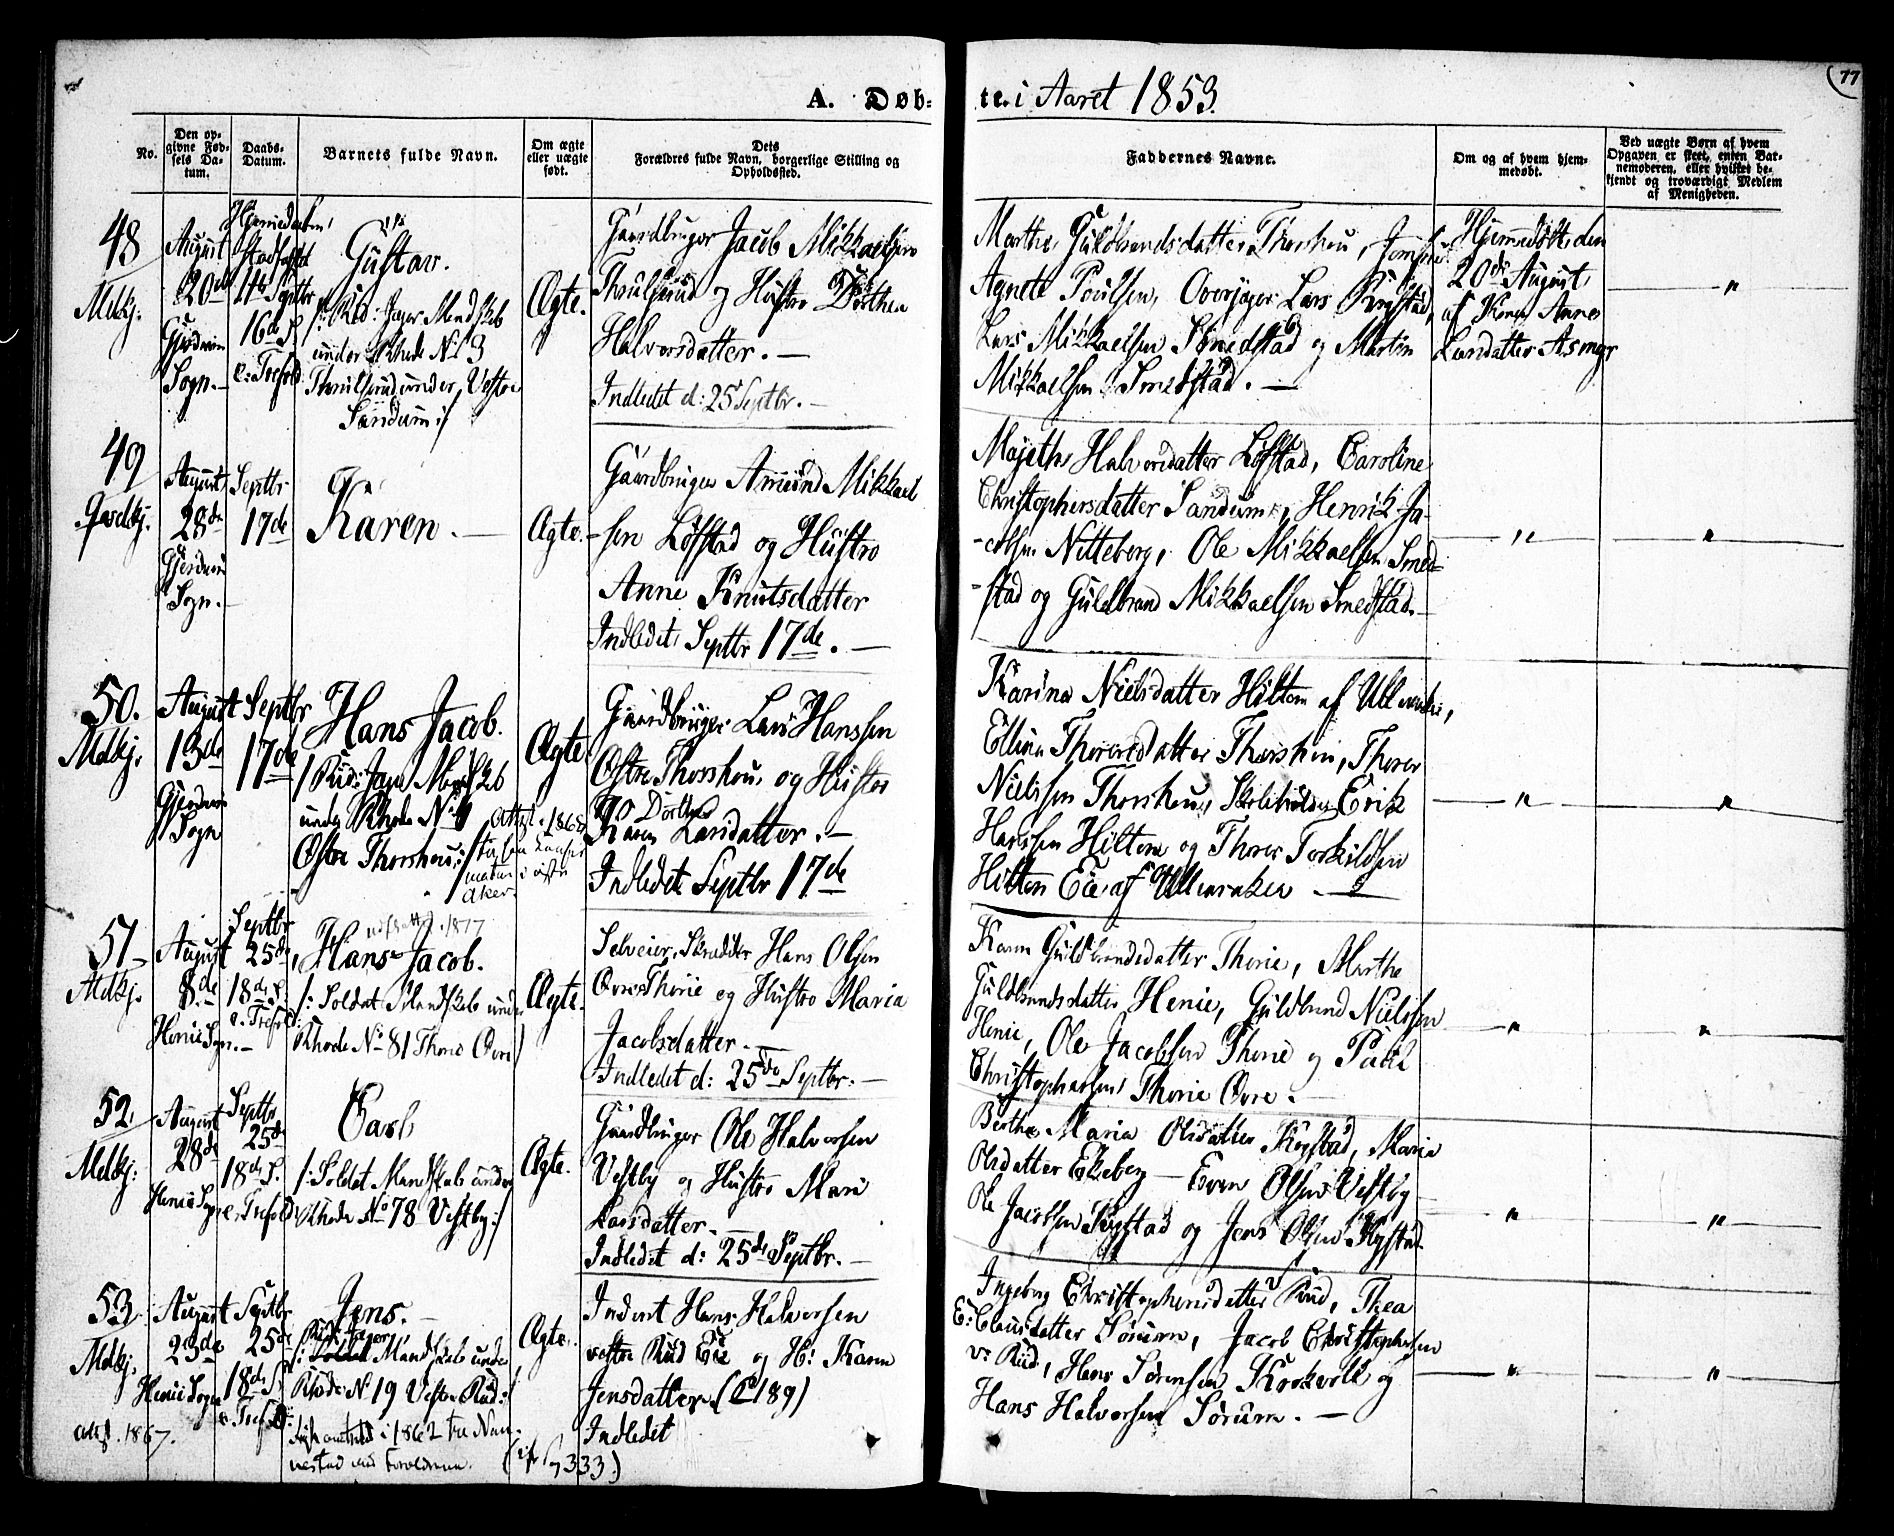 77
A. Døb:
te. i Aaret 1853.
No.
Den op-
givne Fød-
sels Da-
tum.
Daabs-
Datum.
Barnets fulde Navn.
Om ægte
eller uægte
født.
Dets
Forældres fulde Navn, borgerlige Stilling og
Opholdssted.
Faddernes Navne.
Om og af hvem hjem-
medøbt.
Ved uægte Børn af hvem
Opgaven er skeet, enten Bar-
nemoderen, eller hvilket be-
kjendt og troværdigt Medlem
af Menigheden.
48
Mdkj.
August
20de
Gjerdrum
Sogn.
Hjemmedaaben
stadfæstet
11te Septbr
16de S.
e. Trefold
Gustav.
/: Rid: Jæger Mandskab
under Rhode No 3
Thoulsrud under Vestre
Sandum :/
Ægte.
Gaardbruger Jacob Mikkaelsen
Thoulsrud og Hustro Dorthea
Halvorsdatter. —
Indledet d: 25 Septbr. —
Marthe Guldbrandsdatter Thorshou, Jomfru
Agnete Poulsen, Overjæger Lars Kogstad,
Lars Mikkaelsen Smedstad og Martin
Mikkaelsen Smedstad. —
Hjemmedøbt den
20de August
af Kone Anne
Larsdatter Asmyr
"
49
Qvdkj.
August
28de
Gjerdrum
Sogn. —
Septbr
17de
Karen. —
Ægte. —
Gaardbruger Amund Mikkael
-sen Løfstad og Hustro
Anne Knutsdatter
Indledet Septbr 17de. —
Majethe Halvorsdatter Løfstad, Caroline
Christophersdatter Sandum, Henrik Ja-
-cobsen Nitteberg, Ole Mikkaelsen Smed-
-stad og Guldbrand Mikkaelsen Smedstad. —
" "
50.
Mdkj.
August
13de
Gjerdrum
Sogn
Septbr
17de
Hans Jacob.
/: Rid: Jæger Mandskab
under Rhode No 4
Østre Thorshou :/
Attest 1868
Aker
Ægte
Gaardbruger Lars Hanssen
Østre Thorshou og Hustro
Dorthe
Karen Larsdatter. —
Indledet Septbr 17de
Karina Nielsdatter Hilton af Ullensaker,
Ellina Thoresdatter Thorshou, Thorer
Nielssen Thorshou, Skoleholder Erik
Hanssen Hilton og Thorer Torkildsen
Hilton Eie af Ullensaker. —
" "
51
Mdkj.
August
8de
Henie Sogn. —
Septbr
25de,
18de S.
e. Trefold:
udskreven 1877
Hans Jacob.
/: Soldat Mandskab under
Rhode No 81 Thorie Øvre/
Ægte.
Selveier, Skrædder Hans Olsen
Øvre Thorie og Hustro Maria
Jacobsdatter. —
Indledet d: 25de Septbr. —
Karen Guldbrandsdatter Thorie, Marthe
Guldbrandsdatter Henie, Guldbrand Nielssen
Henie, Ole Jacobsen Thorie og Paul
Christophersen Thorie Øvre. —
" "
52
Mdkj:
August
28de
Henie Sogn
Septbr
25de
18de S.
e. Trefold:
Carl
/: Soldat Mandskab under
Rhode No 78 Vestby:/
Ægte.
Gaardbruger Ole Halvorsen
Vestby og Hustro Mari
Larsdatter. —
Indledet d: 25de Septbr. —
Berthe Maria Olsdatter Kogstad, Maria
Olsdatter Ekeberg — Even Olsen Vestby
Ole Jacobsen Kogstad og Jens Olsen Kogstad.
" "
53
Mdkj.
August
23de
Henie Sogn
Attest. 1867.
Septbr
25de
18de S.
e. Trefold:
Jens. —
Rid: Jæger
/: Soldat Mandskab under
Rhode No 19 Vestre Rud:/
i 1862 fra Nan-
nestad med Forældrene.
Ægte.
Inderst Hans Halvorsen
vestre Rud Eie og H: Karen
Jensdatter (C 189)
Indledet
333)
Ingeborg Christophersdatter Rud, Thea
Clausdatter Sørum, Jacob Christophersen
v: Rud, Hans Sørensen Krokvold og
Hans Halvorsen Sørum. —
" "